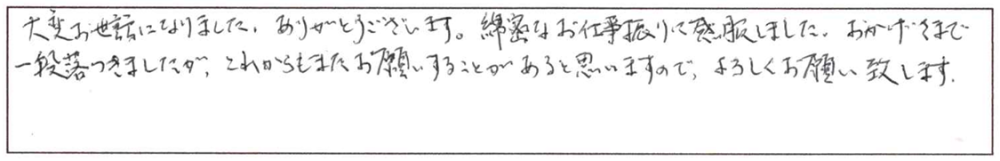 大変お世話になりました。ありがとうございます。綿密なお仕事振りに感服しました。おかげさまで
一段落つきましたが、これからもまたお願いすることがあると思いますので、よろしくお願い致します。